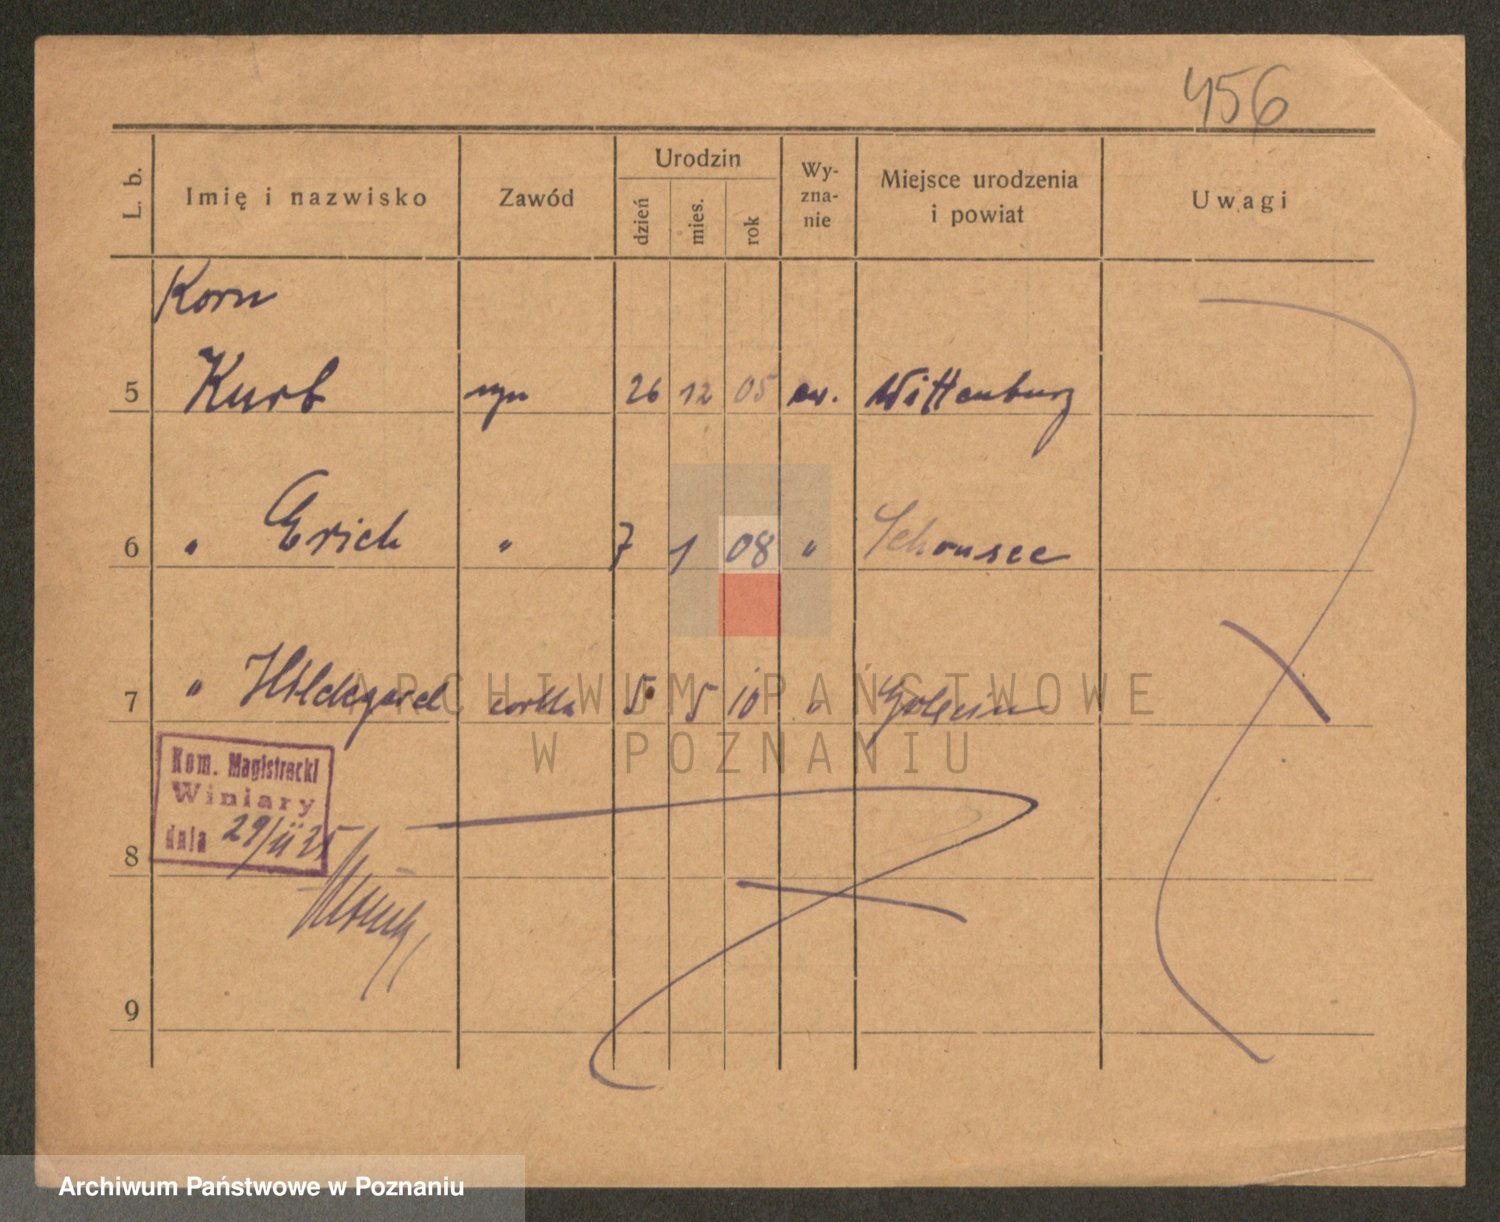 456
L. b. Imię i nazwisko Zawód Urodzin dzień mies. rok Wy-zna-nie Miejsce urodzenia i powiat Uwagi
Korn
5 Kurt syn 26 12 05 ew. Wittenburg
6 " Erich " 7 1 08 " Schönsee
7 " Hildegard córka 5 5 10 " Golęcin
ARCHIWUM PAŃSTWOWE
W POZNANIU
Kom. Magistracki
Winiary
dnia 29/II 25
8
9
Archiwum Państwowe w Poznaniu